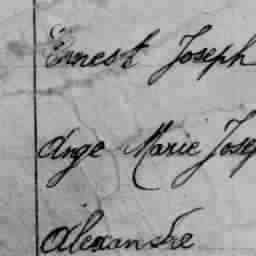 Ernest Joseph
Ange Marie Josep
Alexandre